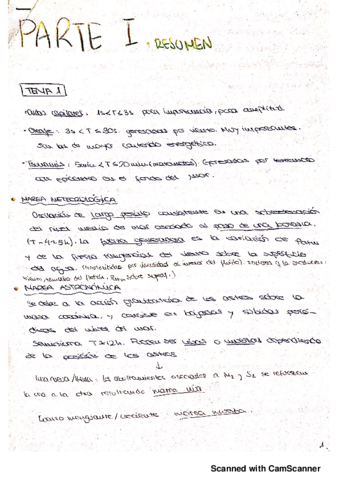 PARTE I. RESUMEN
TEMA 1
· Ondas capilares: 1s<T≤3s poca importancia, poca amplitud.
· Oleaje: 3s<T≤30s. generadas por viento. Muy importantes.
Son las de mayor contenido energético.
· Tsunamis: 5min<T≤20min (maremotos). Generados por terremoto
con epicentro en el fondo del mar.
· MAREA METEOROLÓGICA
Oscilación de largo periodo consistente en una sobreelevación
del nivel medio de mar asociado al paso de una borrasca
. La fuerza generadora es la variación de Patm
y de la fuerza tangencial del viento sobre la superficie
del agua. (
· MAREA ASTRONÓMICA
Se debe a la acción gravitatoria de los astros sobre la
masa continua, y consiste en bajadas y subidas perió-
dicas del nivel del mar.
Semidiurna T≈12h. Pueden ser vivas o muertas dependiendo
de la posición de los astros.
↓
Luna nueva/llena: los asociados a M2 y S2 se refuerzan
la una a la otra resultando marea viva
Cuarto menguante/creciente: marea muerta.
1
Scanned with CamScanner